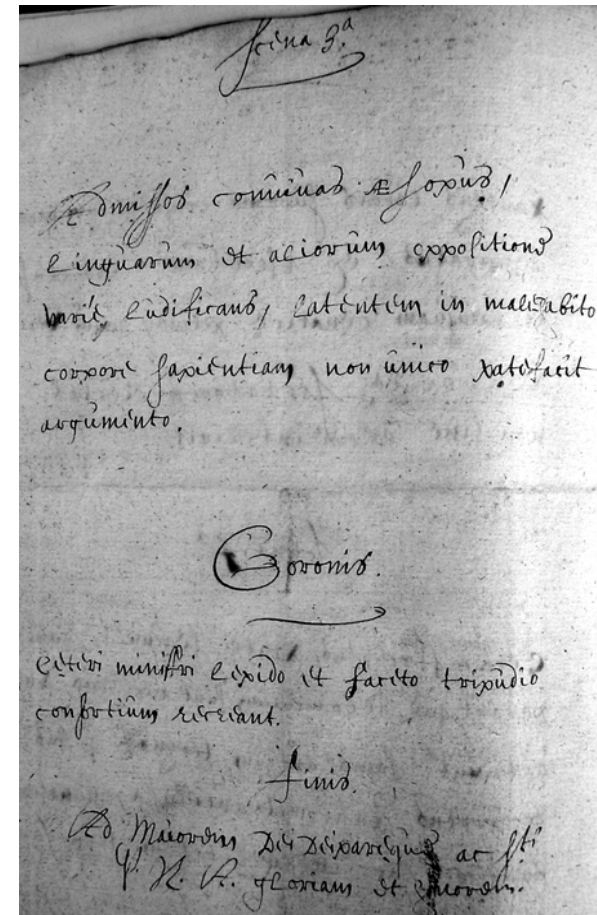 Scena 3.ª
Admissos convivas Æsopus,
linguarum et aliorum expositione
varie ludificans, latentem in malehabito
corpore sapientiam non unico patefacit
argumento.
Coronis.
Cęteri ministri lepido et faceto tripudio
consortium recreant.
Finis.
Ad Maiorem Dei Deiparęque ac Sti
P. N. gloriam et honorem.